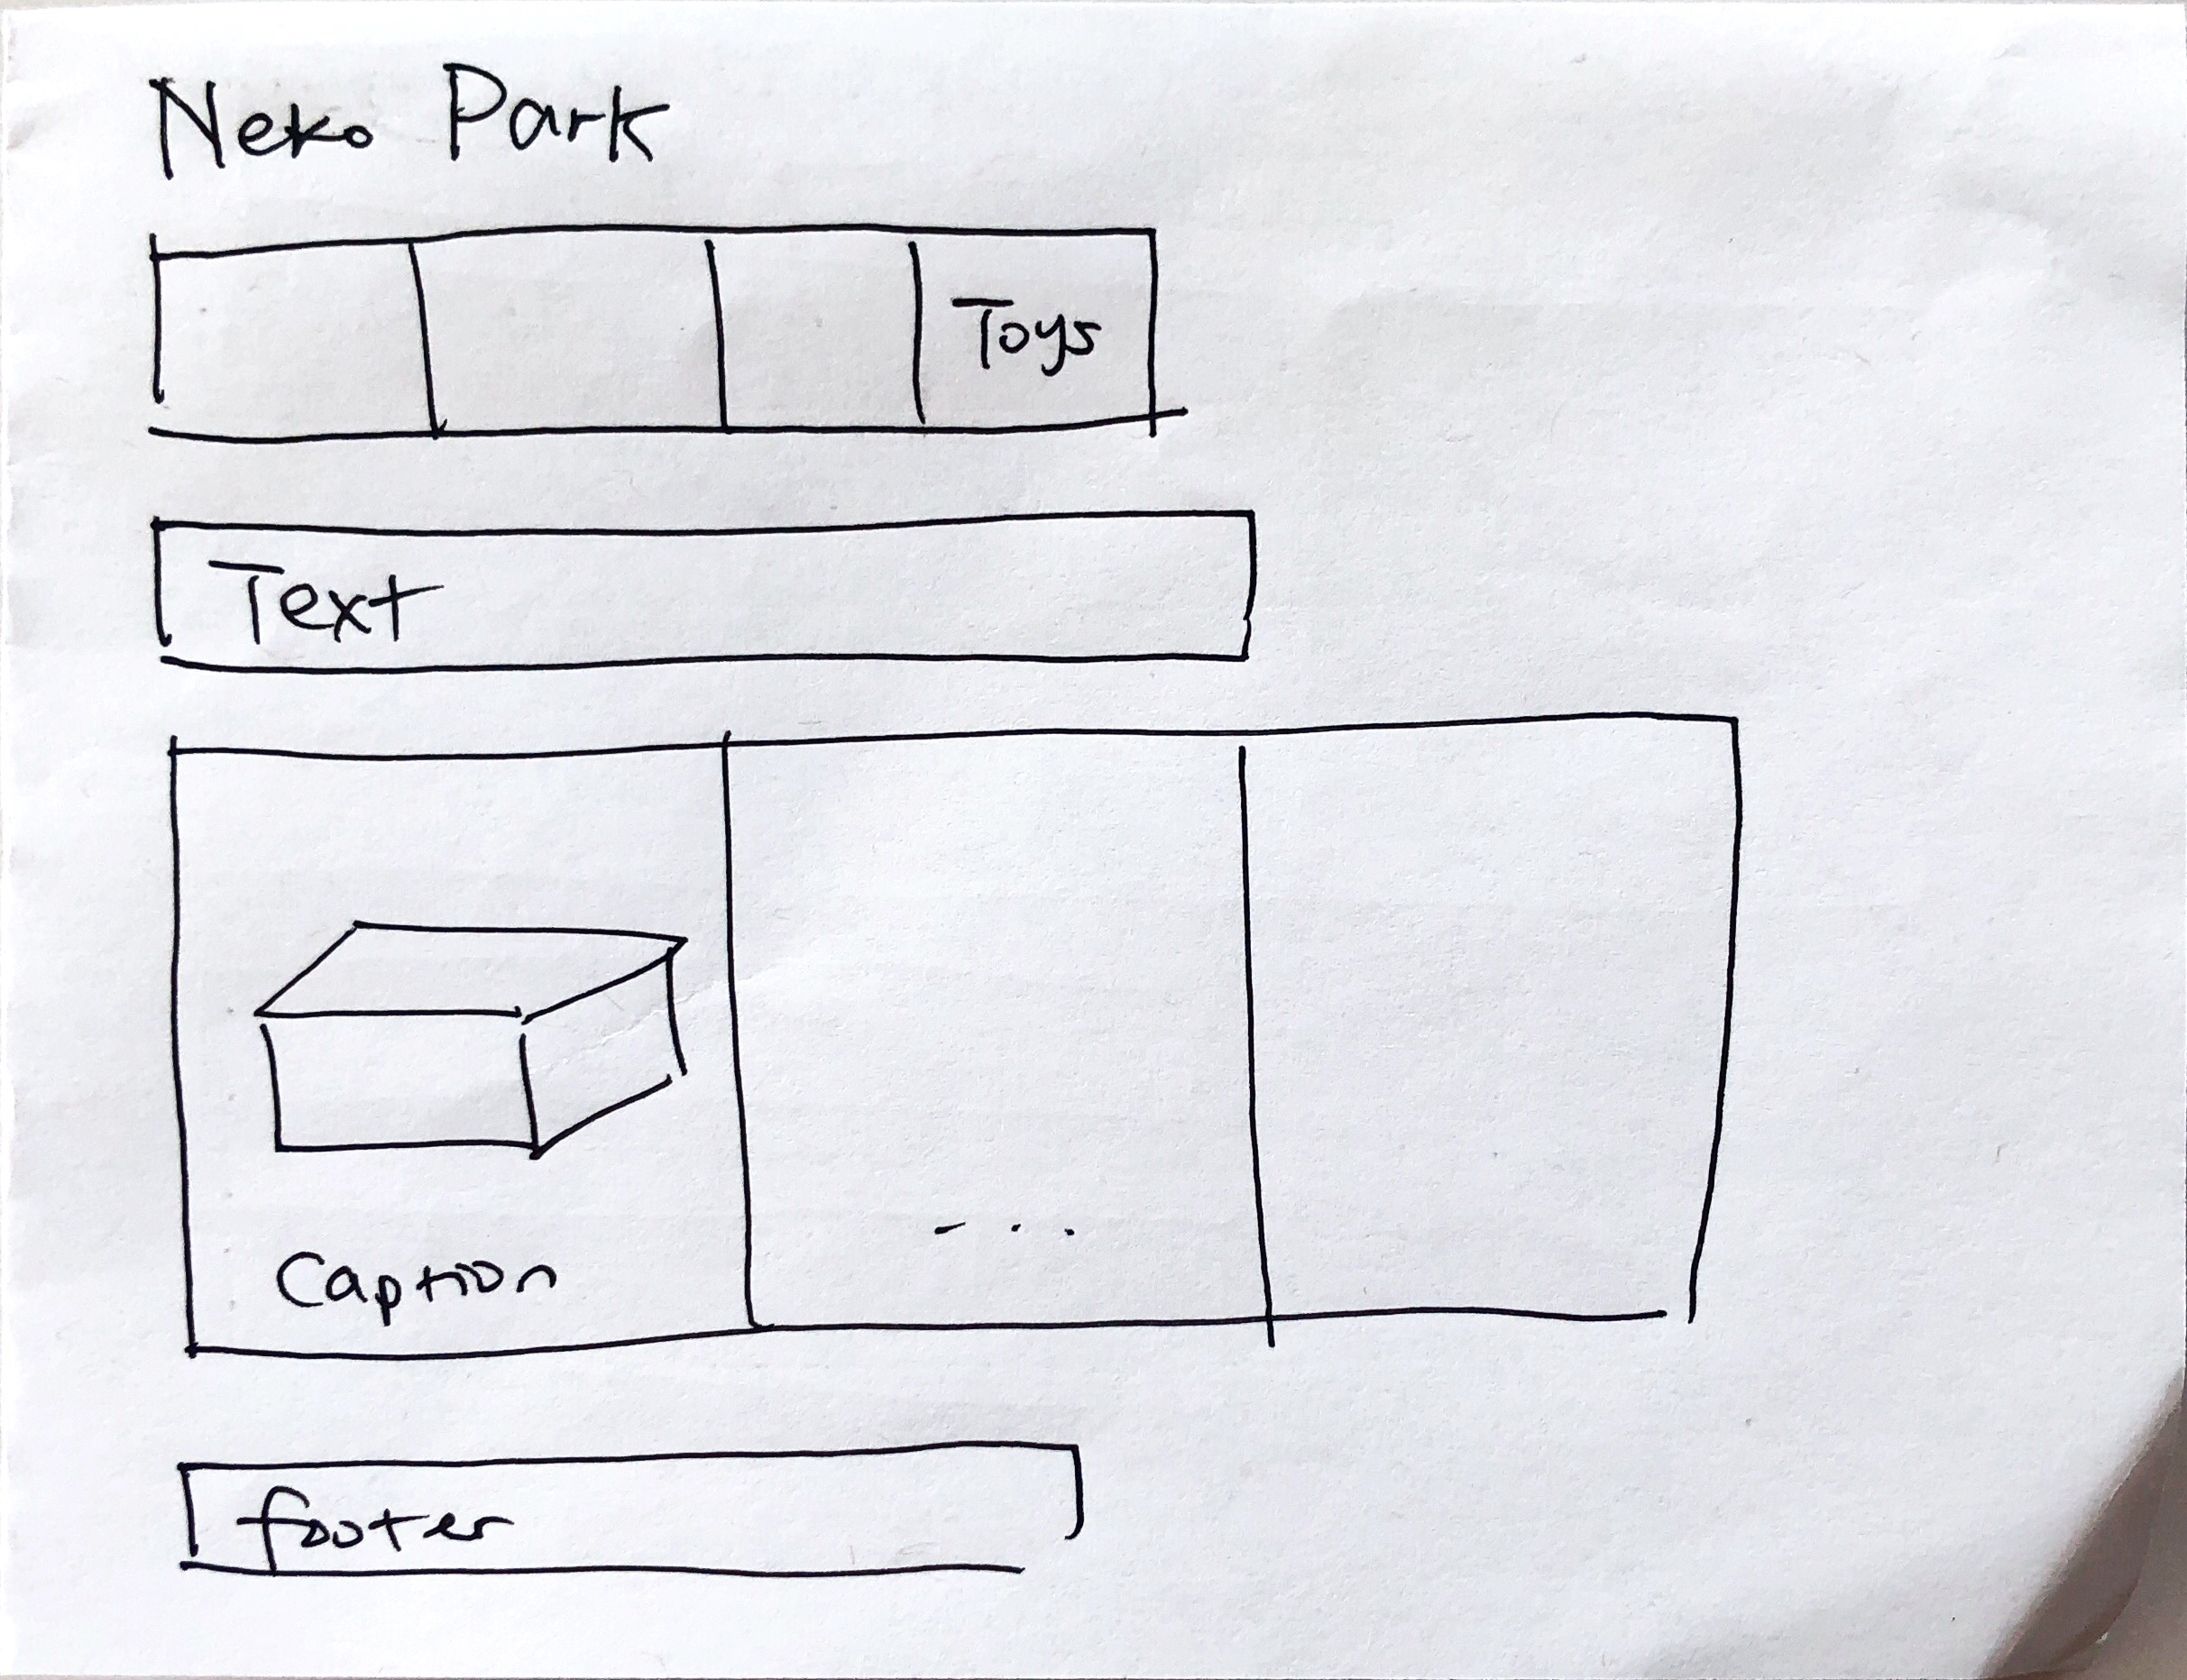 Neko Park
Toys
Text
Caption
...
footer